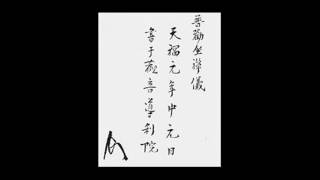 普勧坐禅儀
天福元年中元日
書于観音導利院